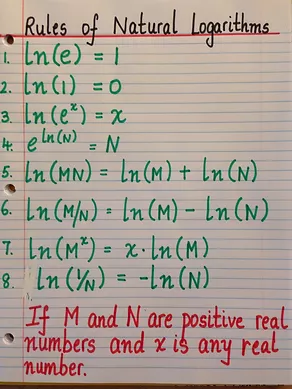 Rules of Natural Logarithms
1. ln(e) = 1
2. ln(1) = 0
3. ln(eˣ) = x
4. e^ln(N) = N
5. ln(MN) = ln(M) + ln(N)
6. ln(M/N) = ln(M) - ln(N)
7. ln(Mˣ) = x·ln(M)
8. ln(1/N) = -ln(N)
If M and N are positive real
numbers and x is any real
number.